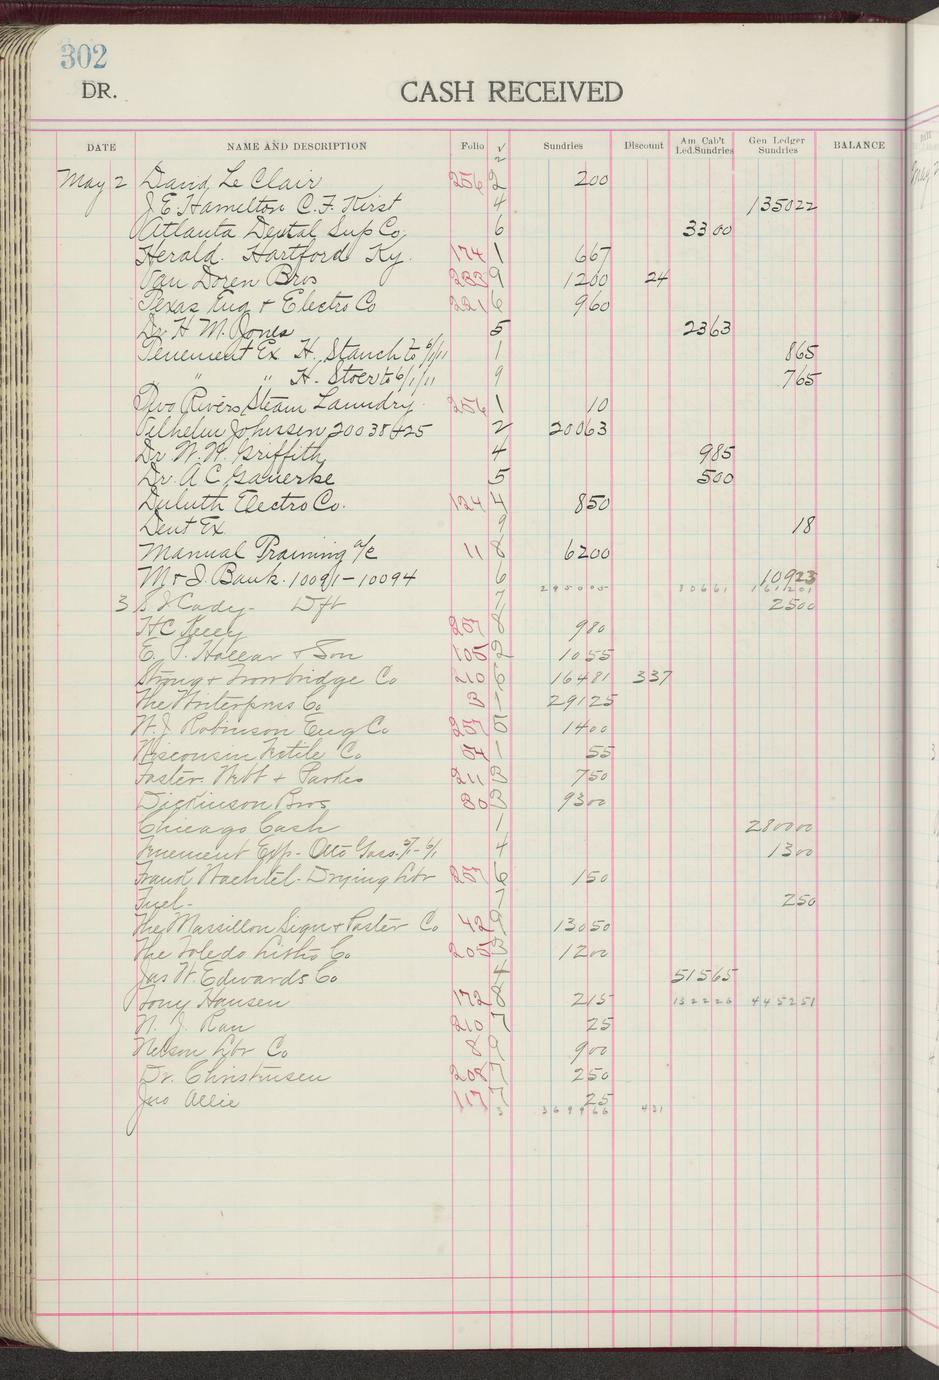 302
DR. CASH RECEIVED
DATE NAME AND DESCRIPTION Folio √ Sundries Discount Am Cab't Led.Sundries Gen Ledger Sundries BALANCE
2
May 2 David Le Clair 256 2 200
J. E. Hamilton C. F. Kirst 4 135022
Atlanta Dental Sup Co. 6 3300
Herald. Hartford Ky. 174 1 667
Van Doren Bros 233 9 1200 24
Texas Eng + Electro Co 221 6 960
Dr. H. M. Jones 5 2363
Tenement Ex H. Stauch to 6/1/11 1 865
" " H. Stoer to 6/1/11 9 765
Two Rivers Steam Laundry 256 1 10
Vilhelm Johnsen 20038+25 2 20063
Dr. W. H. Griffith 4 985
Dr. A C Gauerke 5 500
Duluth Electro Co. 124 4 850
Dent Ex 9 18
Manual Training a/c 11 8 6200
M + I. Bank. 10091-10094 6 10923
295005 80661 161201
3 S J Cady- Dft 7 2500
HC 207 8 980
E. P. Hollar + Son 105 2 1055
Strong + Trowbridge Co 210 6 16481 337
The Writerpress Co 3 1 29125
W. J. Robinson Eng Co 207 1400
Wisconsin Co 1 55
Foster. Webb + Parkes 211 3 750
Dickinson Bros 80 3 9300
Chicago Cash 1 280000
Tenement Exp- Otto Gass. 5/1-6/1 4 1300
Frank Wachtel- Drying Lbr 207 6 150
Fuel- 7 250
The Massillon Sign + Poster Co 42 9 13050
The Toledo Litho Co. 205 3 1200
Jas W. Edwards Co 4 51565
Tony Hansen 172 8 215 132226 445251
N. J. Rau 210 7 25
Nelson Lbr Co 8 9 900
Dr. Christensen 208 7 250
Jno Allie 117 7 25
3 369966 431